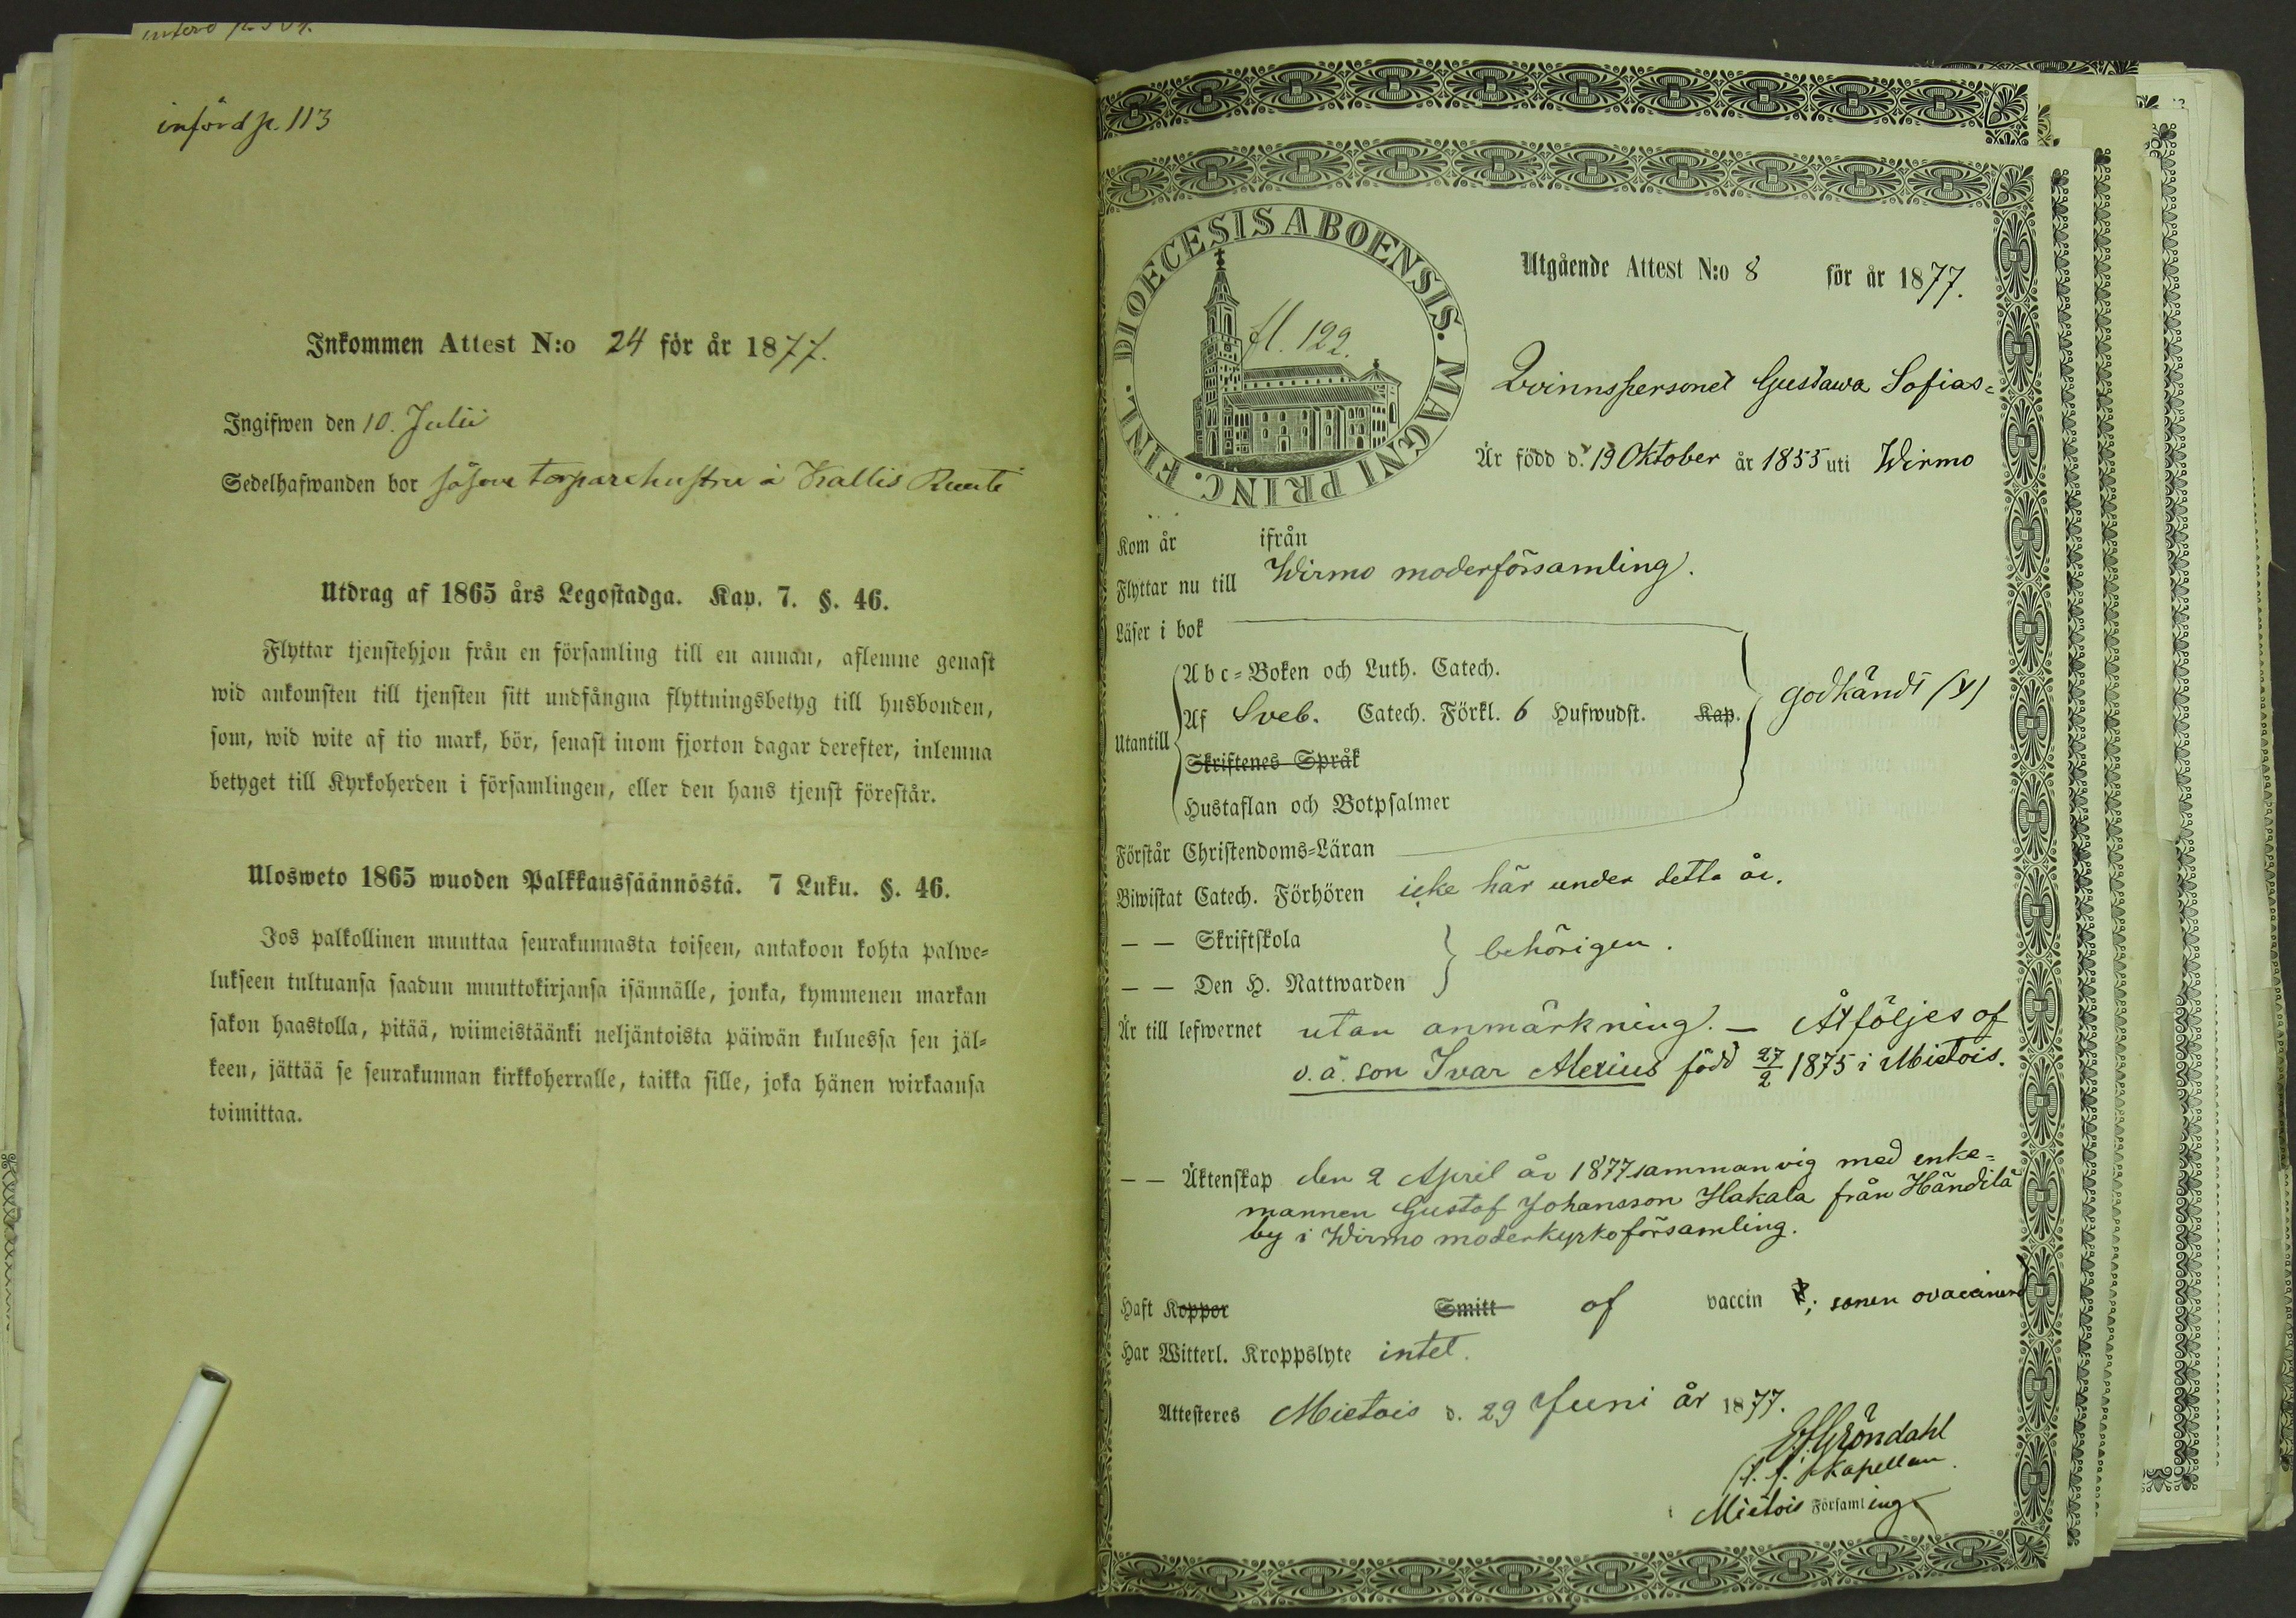 införd p. 113
Inkommen Attest N:o 24 för år 1877.
Ingifwen den 10. Julii
Sedelhafwanden bor såsom torparehustru å Kallis
Utdrag af 1865 års Legostadga. Kap. 7. §. 46.
Flyttar tjenstehjon från en församling till en annan, aflemne genast
wid ankomsten till tjensten sitt undfångna flyttningsbetyg till husbonden,
som, wid wite af tio mark, bör, senast inom fjorton dagar derefter, inlemna
betyget till Kyrkoherden i församlingen, eller den hans tjenst förestår.
Ulosweto 1865 wuoden Palkkaussäännöstä. 7 Luku. §. 46.
Jos palkollinen muuttaa seurakunnasta toiseen, antakoon kohta palwe-
lukseen tultuansa saadun muuttokirjansa isännälle, jonka, kymmenen markan
sakon haastolla, pitää, wiimeistäänki neljäntoista päiwän kuluessa sen jäl-
keen, jättää se seurakunnan kirkkoherralle, taikka sille, joka hänen wirkaansa
toimittaa.
DIOECESIS ABOENSIS. MAGNI PRINC. FINL.
fl. 122.
Utgående Attest N:o 8 för år 1877.
Qvinnspersonet Gustawa Sofias-
Är född d. 19 Oktober år 1855 uti Wirmo
Kom år ifrån
Flyttar nu till Wirmo moderförsamling.
Läser i bok
Abc-Boken och Luth. Catech.
Utantill Af Sveb. Catech. Förkl. 6 Hufwudst. Kap. godkändt (y)
Skriftenes Språk
Hustaflan och Botpsalmer
Förstår Christendoms-Läran
Biwistat Catech. Förhören icke här under detta år.
— — Skriftskola
behörigen.
— — Den H. Nattwarden
Är till lefwernet utan anmärkning. — Åtföljes af
o. ä. son Ivar Alexius född 27/2 1875 i Mietois.
— — Äktenskap den 2 April år 1877 sammanvig med enke-
mannen Gustaf Johansson Hakala från Händilä
by i Wirmo moderkyrkoförsamling.
Haft Koppor Smitt af vaccin ; sonen ovaccinerad
Har Witterl. Kroppslyte intet.
Attesteres Mietois d. 29 Juni år 1877.
Gröndahl
Kapellan.
i Mietois Församling